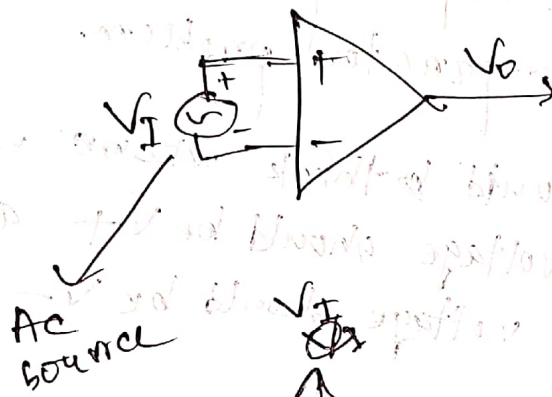 + V₀
+
V_I
-
-
AC
source
V_I